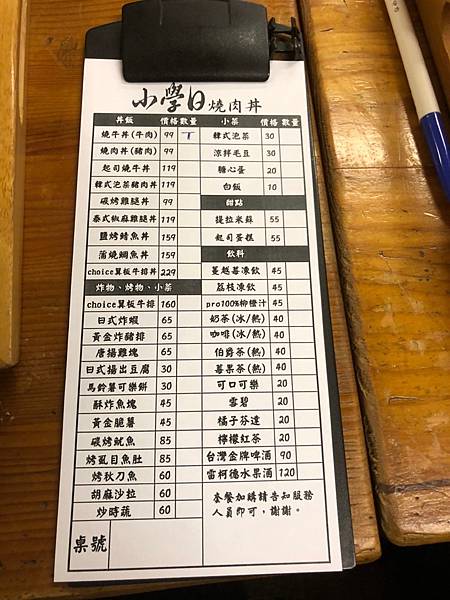 小學日燒肉丼
丼飯 價格 數量
燒牛丼(牛肉) 99 T
燒肉丼(豬肉) 99
起司燒牛丼 119
韓式泡菜豬肉丼 119
碳烤雞腿丼 99
泰式椒麻雞腿丼 119
鹽烤鯖魚丼 159
蒲燒鯛魚丼 159
choice翼板牛排丼 229
炸物、烤物、小菜
choice翼板牛排 160
日式炸蝦 65
黃金炸豬排 65
唐揚雞塊 65
日式揚出豆腐 30
馬鈴薯可樂餅 30
酥炸魚塊 45
黃金脆薯 45
碳烤魷魚 85
烤虱目魚肚 85
烤秋刀魚 60
胡麻沙拉 60
炒時蔬 60
桌號
小菜 價格 數量
韓式泡菜 30
涼拌毛豆 30
糖心蛋 20
白飯 10
甜點
提拉米蘇 55
起司蛋糕 55
飲料
蔓越莓凍飲 45
荔枝凍飲 45
pro100%柳橙汁 45
奶茶(冰/熱) 40
咖啡(冰/熱) 40
伯爵茶(熱) 40
莓果茶(熱) 40
可口可樂 20
雪碧 20
橘子芬達 20
檸檬紅茶 20
台灣金牌啤酒 90
雷柯德水果酒 120
套餐加購請告知服務
人員即可，謝謝。